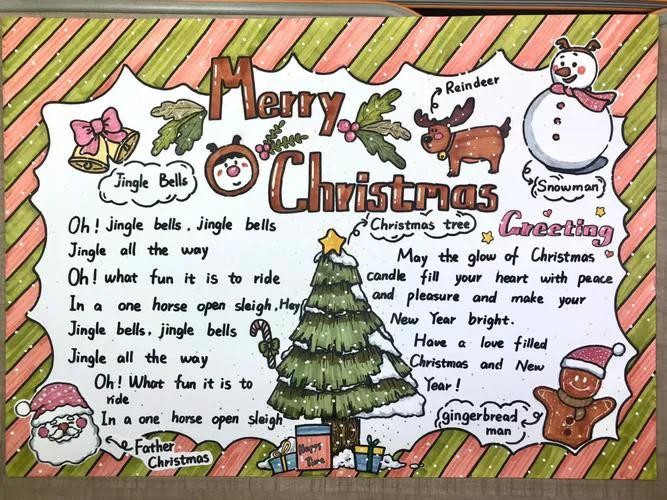 Merry
Christmas
Reindeer
Jingle Bells
Snowman
Christmas tree
Greeting
Oh! jingle bells, jingle bells
Jingle all the way
Oh! what fun it is to ride
In a one horse open sleigh, Hey
Jingle bells, jingle bells
Jingle all the way
Oh! What fun it is to
ride
In a one horse open sleigh
May the glow of Christmas
candle fill your heart with peace
and pleasure and make your
New Year bright.
Have a love filled
Christmas and New
Year!
gingerbread
man
Father
Christmas
Happy